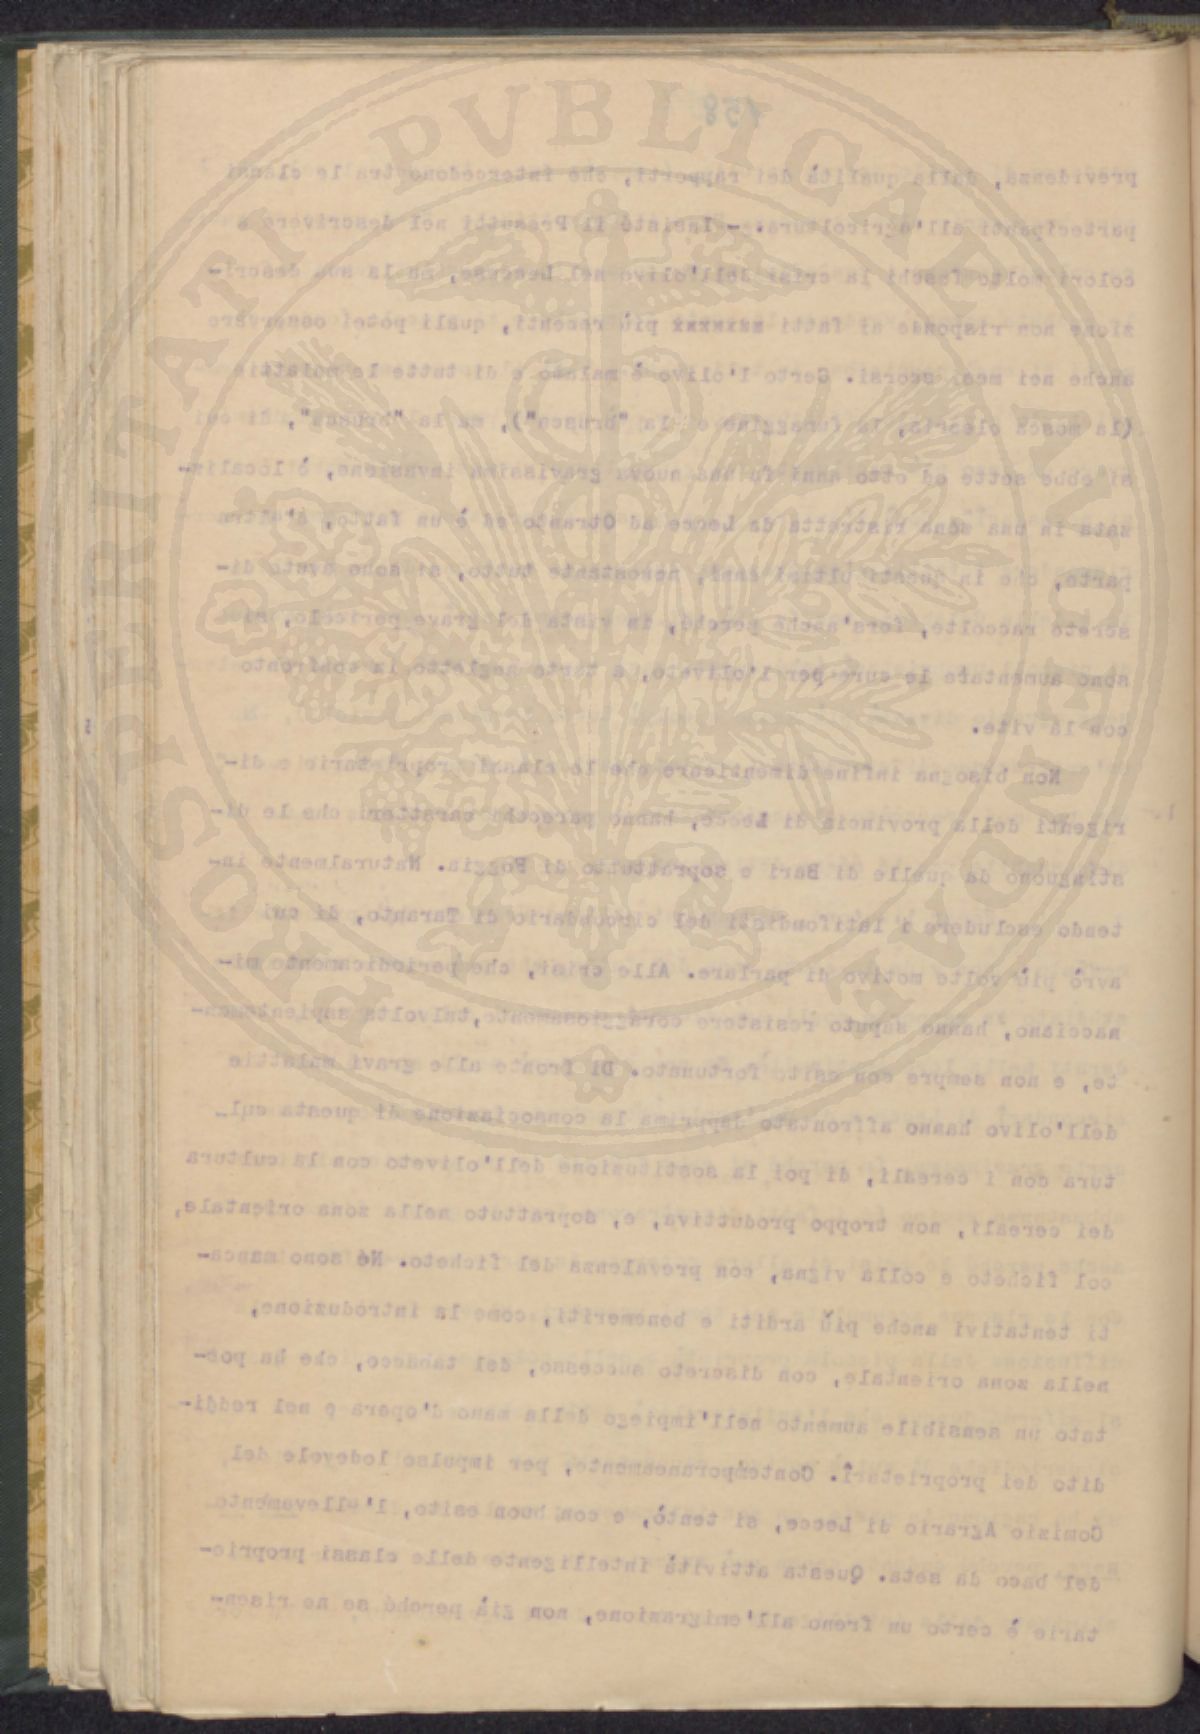 158
previdenza, dalla qualità dei rapporti, che intercedono tra le classi
partecipanti all'agricoltura. - Insisté il Presutti nel descrivere a
colori molto foschi la crisi dell'olivo nel Leccese, ma la sua descri-
zione non risponde ai fatti xxxxxxx più recenti, quali potei osservare
anche nei mesi scorsi. Certo l'olivo è malato e di tutte le malattie
(la mosca olearia, la fumaggine e la "brusca"), ma la "brusca", di cui
si ebbe sette od otto anni fa una nuova gravissima invasione, è localiz-
zata in una zona ristretta da Lecce ad Otranto ed è un fatto, d'altra
parte, che in questi ultimi anni, nonostante tutto, si sono avute di-
screte raccolte, fors'anche perché, in vista del grave pericolo, si
sono aumentate le cure per l'oliveto, a torto negletto in confronto
con la vite.
Non bisogna infine dimenticare che le classi proprietarie e di-
rigenti della provincia di Lecce, hanno parecchi caratteri che le di-
stinguono da quelle di Bari e soprattutto di Foggia. Naturalmente in-
tendo escludere i latifondisti del circondario di Taranto, di cui
avrò più volte motivo di parlare. Alle crisi, che periodicamente mi-
nacciano, hanno saputo resistere coraggiosamente, talvolta sapientemen-
te, e non sempre con esito fortunato. Di fronte alle gravi malattie
dell'olivo hanno affrontato dapprima la consociazione di questa cul-
tura con i cereali, di poi la sostituzione dell'oliveto con la cultura
dei cereali, non troppo produttiva, e, soprattutto nella zona orientale,
col ficheto e colla vigna, con prevalenza del ficheto. Né sono manca-
ti tentativi anche più arditi e benemeriti, come la introduzione,
nella zona orientale, con discreto successo, del tabacco, che ha por-
tato un sensibile aumento nell'impiego della mano d'opera e nel reddi-
dito dei proprietarî. Contemporaneamente, per impulso lodevole del
Comizio Agrario di Lecce, si tentò, e con buon esito, l'allevamento
del baco da seta. Questa attività intelligente delle classi proprie-
tarie è certo un freno all'emigrazione, non già perché se ne risen-
PROSPERITATI PVBLICAE AVGENDAE